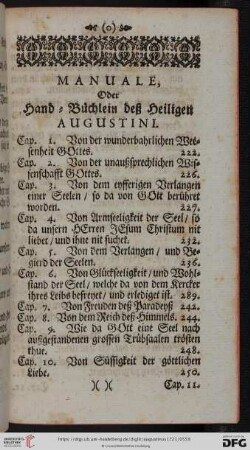 (o)
MANUALE,
Oder
Hand-Büchlein deß Heiligen
AUGUSTINI.
Cap. 1. Von der wunderbahrlichen Wes-
senheit GOttes. 221.
Cap. 2. Von der unaußsprechlichen Wis-
senschafft GOttes. 226.
Cap. 3. Von dem eyfferigen Verlangen
einer Seelen / so da von GOtt berühret
worden. 227.
Cap. 4. Von Armseligkeit der Seel / so
da unsern HErren JEsum Christum nit
liebet / und ihne nit suchet. 232.
Cap. 5. Von dem Verlangen / und Be-
gierd der Seelen. 236.
Cap. 6. Von Glückseeligkeit / und Wohl-
stand der Seel / welche da von dem Kercker
ihres Leibs befreyet / und erlediget ist. 289.
Cap. 7. Von Freuden deß Paradeyß 241.
Cap. 8. Von dem Reich deß Himmels. 244.
Cap. 9. Wie da GOtt eine Seel nach
außgestandenen grossen Trühsaalen trösten
thue. 248.
Cap. 10. Von Süssigkeit der göttlichen
Liebe. 250.
)( )( Cap. 11.